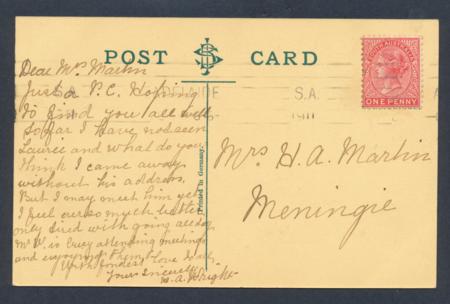 POST CARD
Dear Mrs Martin
Just a P.C. Hoping
to find you all well
So far I have not seen
Laurie and what do you
think I came away
without his address.
But I may meet him yet
I feel ever so much better
only tired with going all day
Mr W. is busy attending meetings
and enjoying them. Love to all
With fondest
Yours Sincerely
A. Wright
ADELAIDE
S.A.
1911
SOUTH AUSTRALIA
ONE PENNY
Printed in Germany.
Mrs H. A. Martin
Meningie